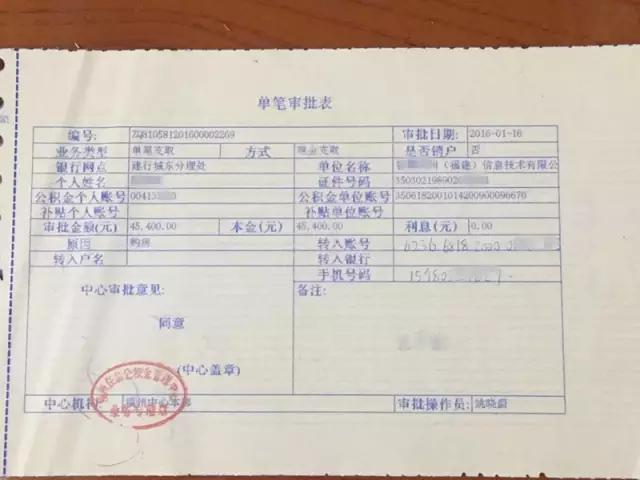 单笔审批表
编号: ZQ810581201600002269 审批日期: 2016-01-16
业务类型 单笔支取 方式 现金支取 是否销户 否
银行网点 建行城东分理处 单位名称 (福建)信息技术有限公
个人姓名 证件号码 350302198902
公积金个人账号 00413 公积金单位账号 35061820010142009000966​70
补贴个人账号 补贴单位账号
审批金额(元) 45,400.00 本金(元) 45,400.00 利息(元) 0.00
原因 购房 转入账号 6236 6818 2000 0
转入户名 转入银行
手机号码 15980
中心审批意见: 备注:
同意
(中心盖章)
中心机构: 福州中心本部 审批操作员: 姚晓蔚